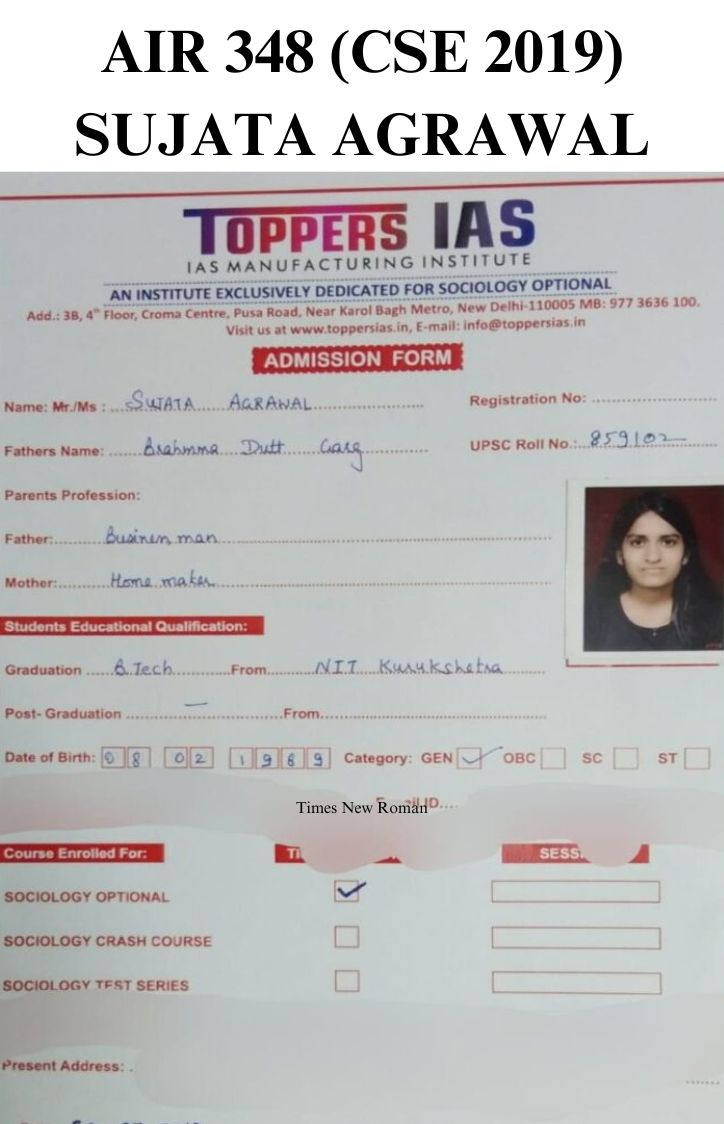 AIR 348 (CSE 2019)
SUJATA AGRAWAL
TOPPERS IAS
IAS MANUFACTURING INSTITUTE
AN INSTITUTE EXCLUSIVELY DEDICATED FOR SOCIOLOGY OPTIONAL
Add.: 3B, 4th Floor, Croma Centre, Pusa Road, Near Karol Bagh Metro, New Delhi-110005 MB: 977 3636 100.
Visit us at www.toppersias.in, E-mail: info@toppersias.in
ADMISSION FORM
Name: Mr./Ms : SUJATA AGRAWAL Registration No:
Fathers Name: Brahmma Dutt Garg UPSC Roll No.: 859102
Parents Profession:
Father: Businen man
Mother: Home maker
Students Educational Qualification:
Graduation B.Tech From NIT Kurukshetra
Post- Graduation — From
Date of Birth: 08 02 1989 Category: GEN ✓ OBC SC ST
Times New Roman ID....
Course Enrolled For: SESS
SOCIOLOGY OPTIONAL ✓
SOCIOLOGY CRASH COURSE
SOCIOLOGY TEST SERIES
Present Address: .